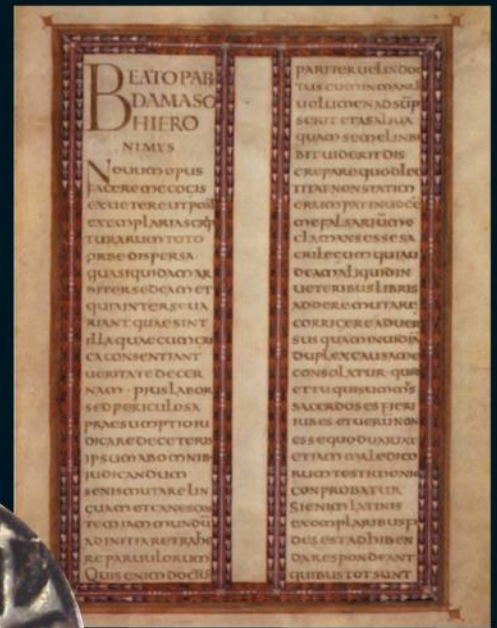 BEATO PAP
DAMASO
HIERO
NIMVS
NOUUM OPUS
FACERE ME COGIS
EX UETERE UT POST
EXEMPLARIA SCRIP
TURARUM TOTO
ORBE DISPERSA
QUASI QUIDAM AR
BITER SEDEAM ET
QUIA INTER SE UA
RIANT QUAE SINT
ILLA QUAE CUM GRE
CA CONSENTIANT
UERITATE DECER
NAM · PIUS LABOR
SED PERICULOSA
PRAESUMPTIO IU
DICARE DE CETERIS
IPSUM AB OMNIB
IUDICANDUM
SENIS MUTARE LIN
GUAM ET CANESCEN
TEM IAM MUNDŪ
AD INITIA RETRAHE
RE PARUULORUM
QUIS ENIM DOCTUS
PARITER UEL INDOC
TUS CUM IN MANUS
UOLUMEN ADSŪP
SERIT ET A SALIUA
QUAM SEMEL INBI
BIT UIDERIT DIS
CREPARE QUOD LEC
TITAT NON STATIM
ERUMPAT IN UOCĒ
ME FALSARIŪ ME
CLAMANS ESSE SA
CRILEGUM QUI AU
DEAM ALIQUID IN
UETERIBUS LIBRIS
ADDERE MUTARE
CORRIGERE ADUER
SUS QUAM INUIDIĀ
DUPLEX CAUSA ME
CONSOLATUR · QUOD
ET TU QUI SUMMUS
SACERDOS ES FIERI
IUBES ET UERUM NON
ESSE QUOD UARIAT
ETIAM MALEDICO
RUM TESTIMONIO
CONPROBATUR
SI ENIM LATINIS
EXEMPLARIBUS FI
DES EST ADHIBEN
DA RESPONDEANT
QUIBUS TOT SUNT